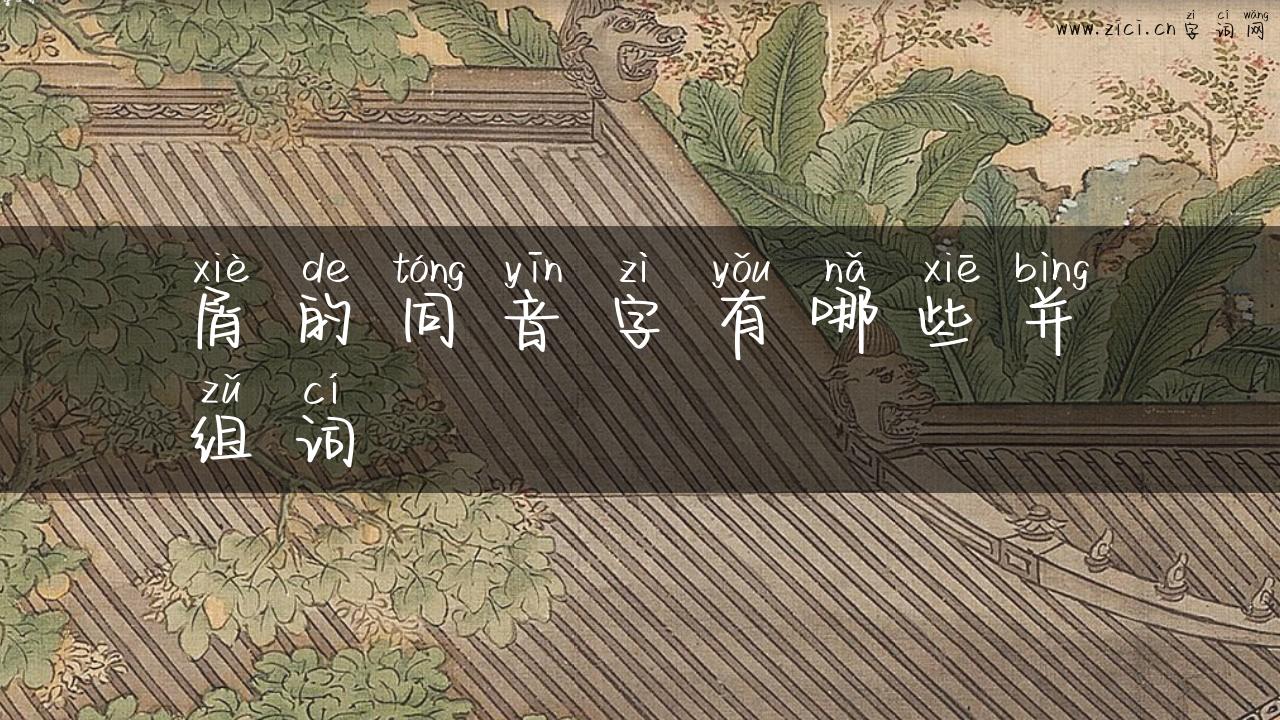 zì cí wǎng
www.zici.cn 字 词 网
xiè de tóng yīn zì yǒu nǎ xiē bìng
屑 的 同 音 字 有 哪 些 并
zǔ cí
组 词